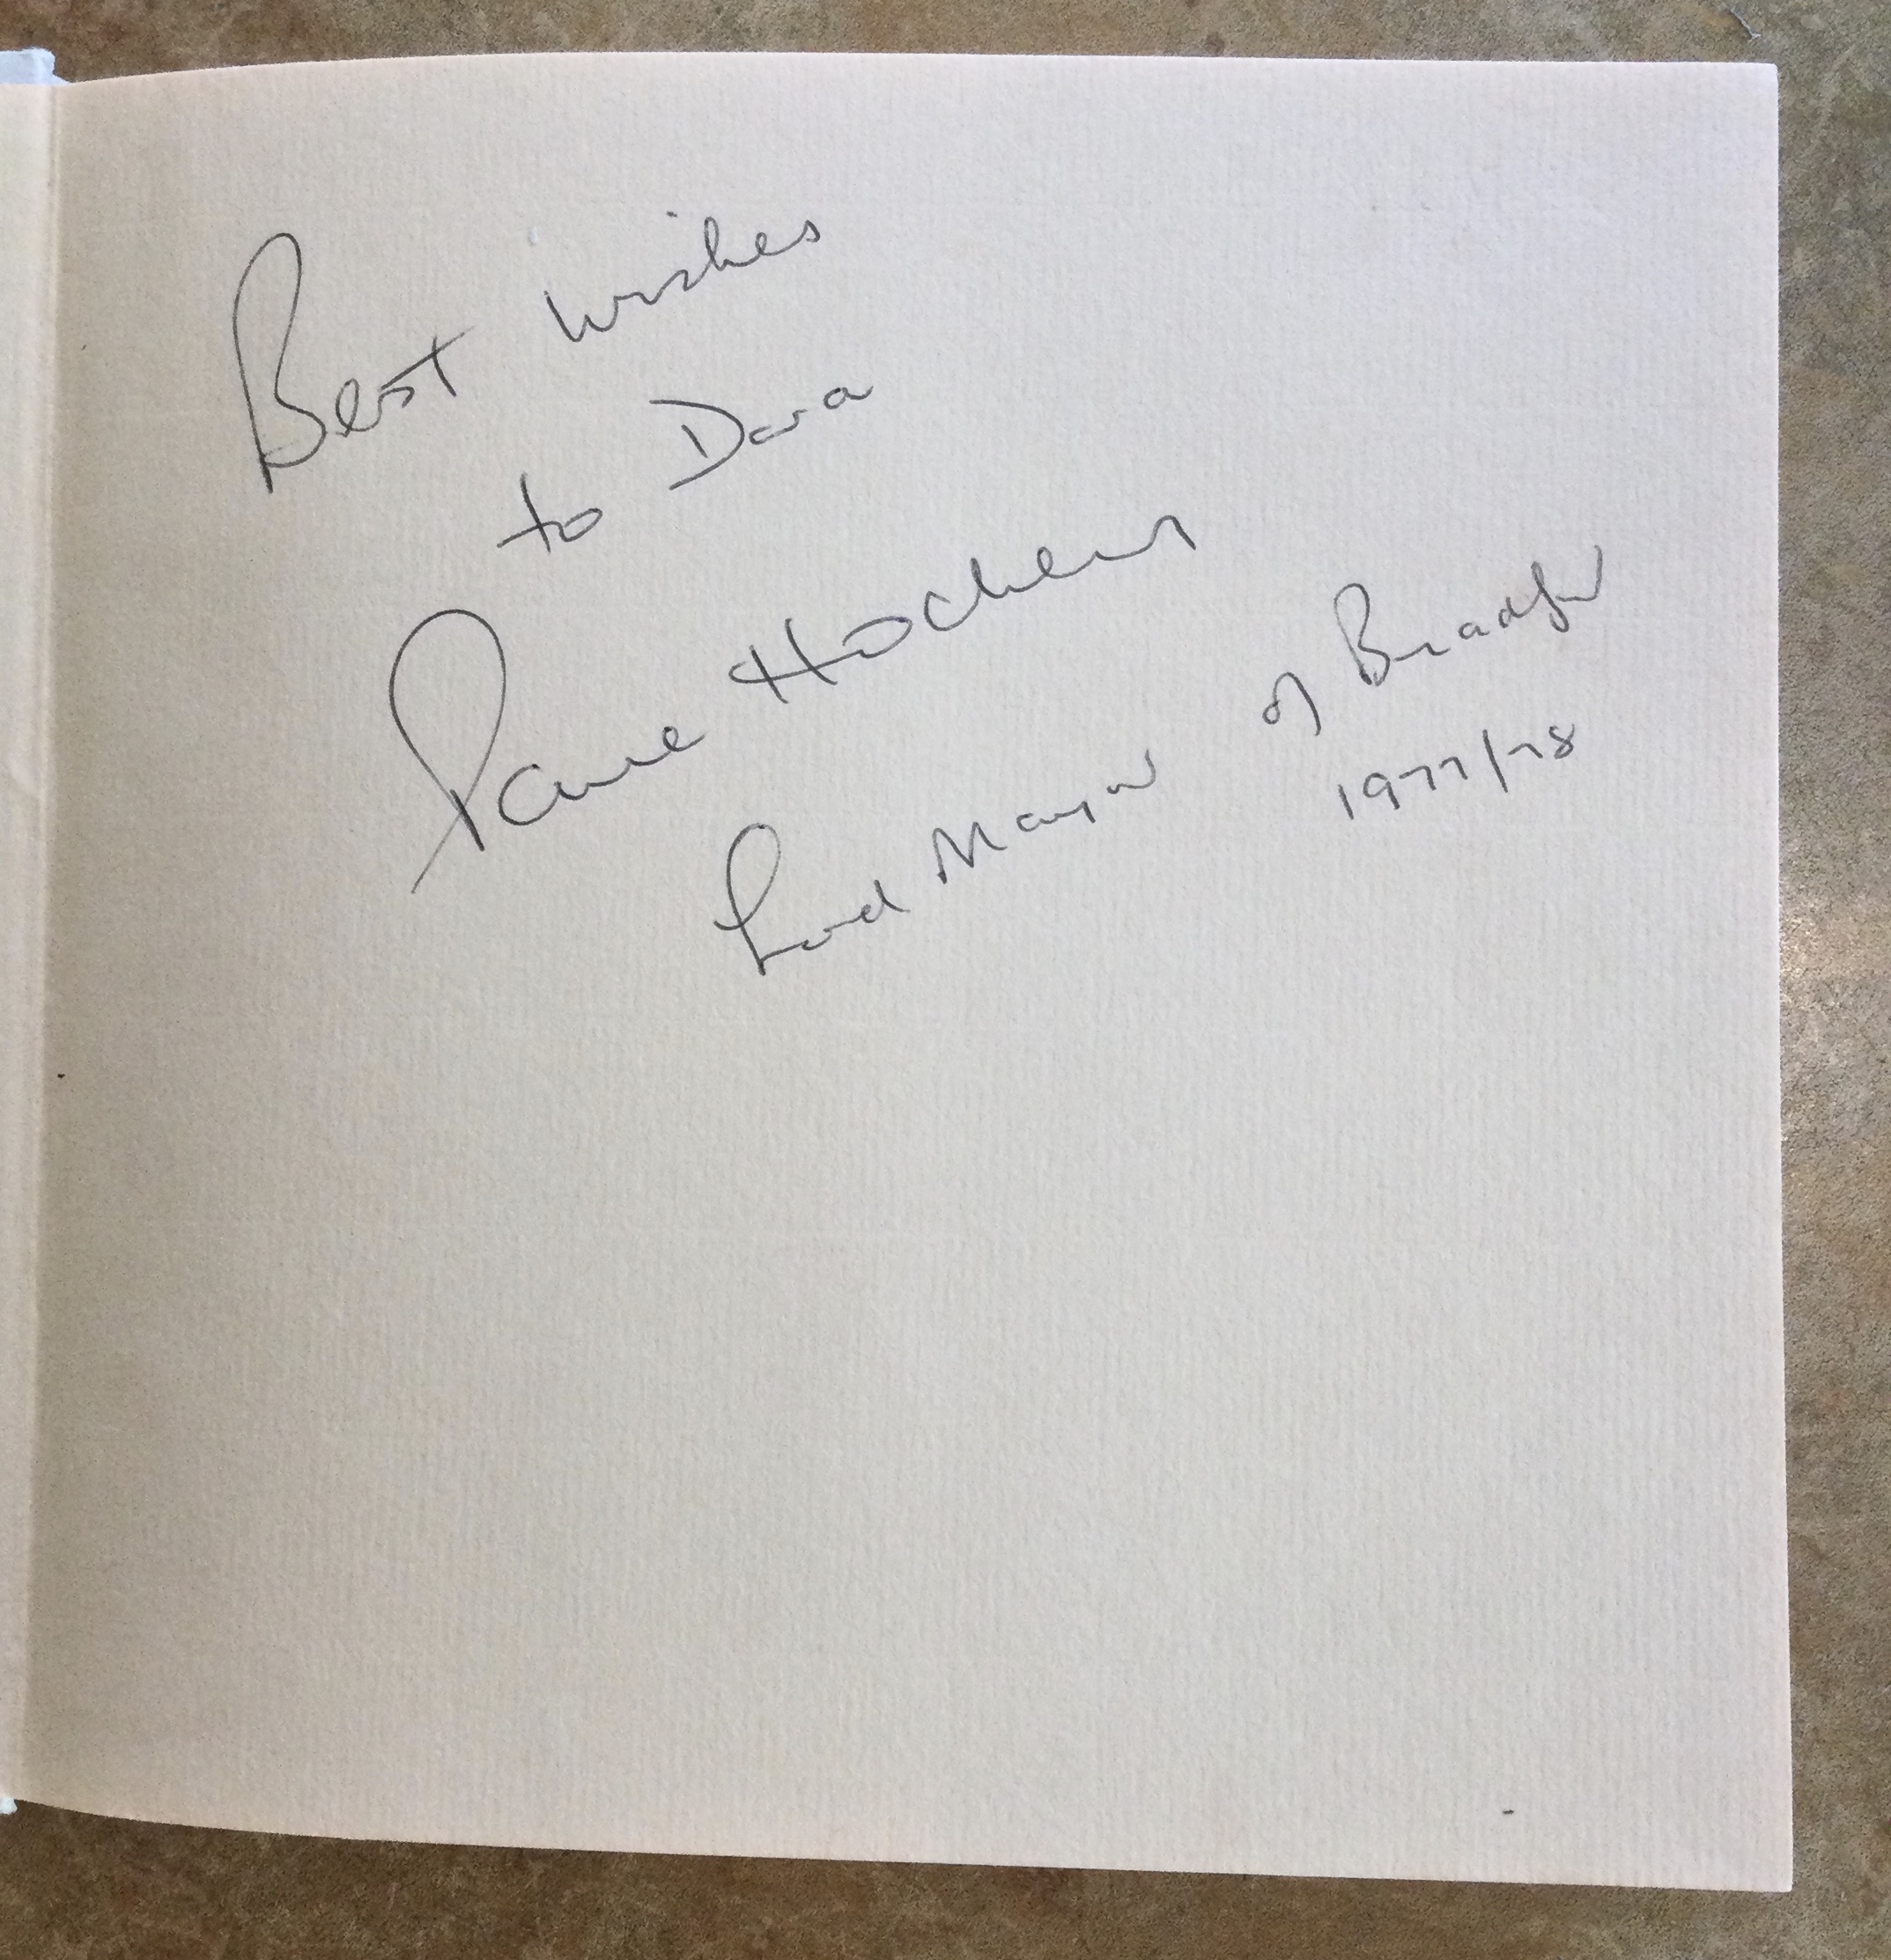 Best wishes
to Dara
Paul Hockney
Lord Mayor of Bradford
1977/78